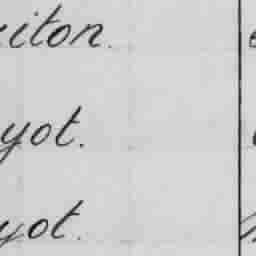 iton.
yot.
yot.